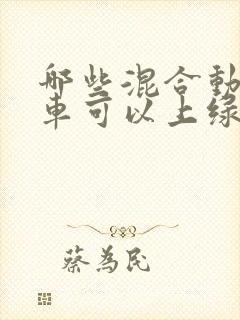 哪些混合動
車可以上綠
蔡為民